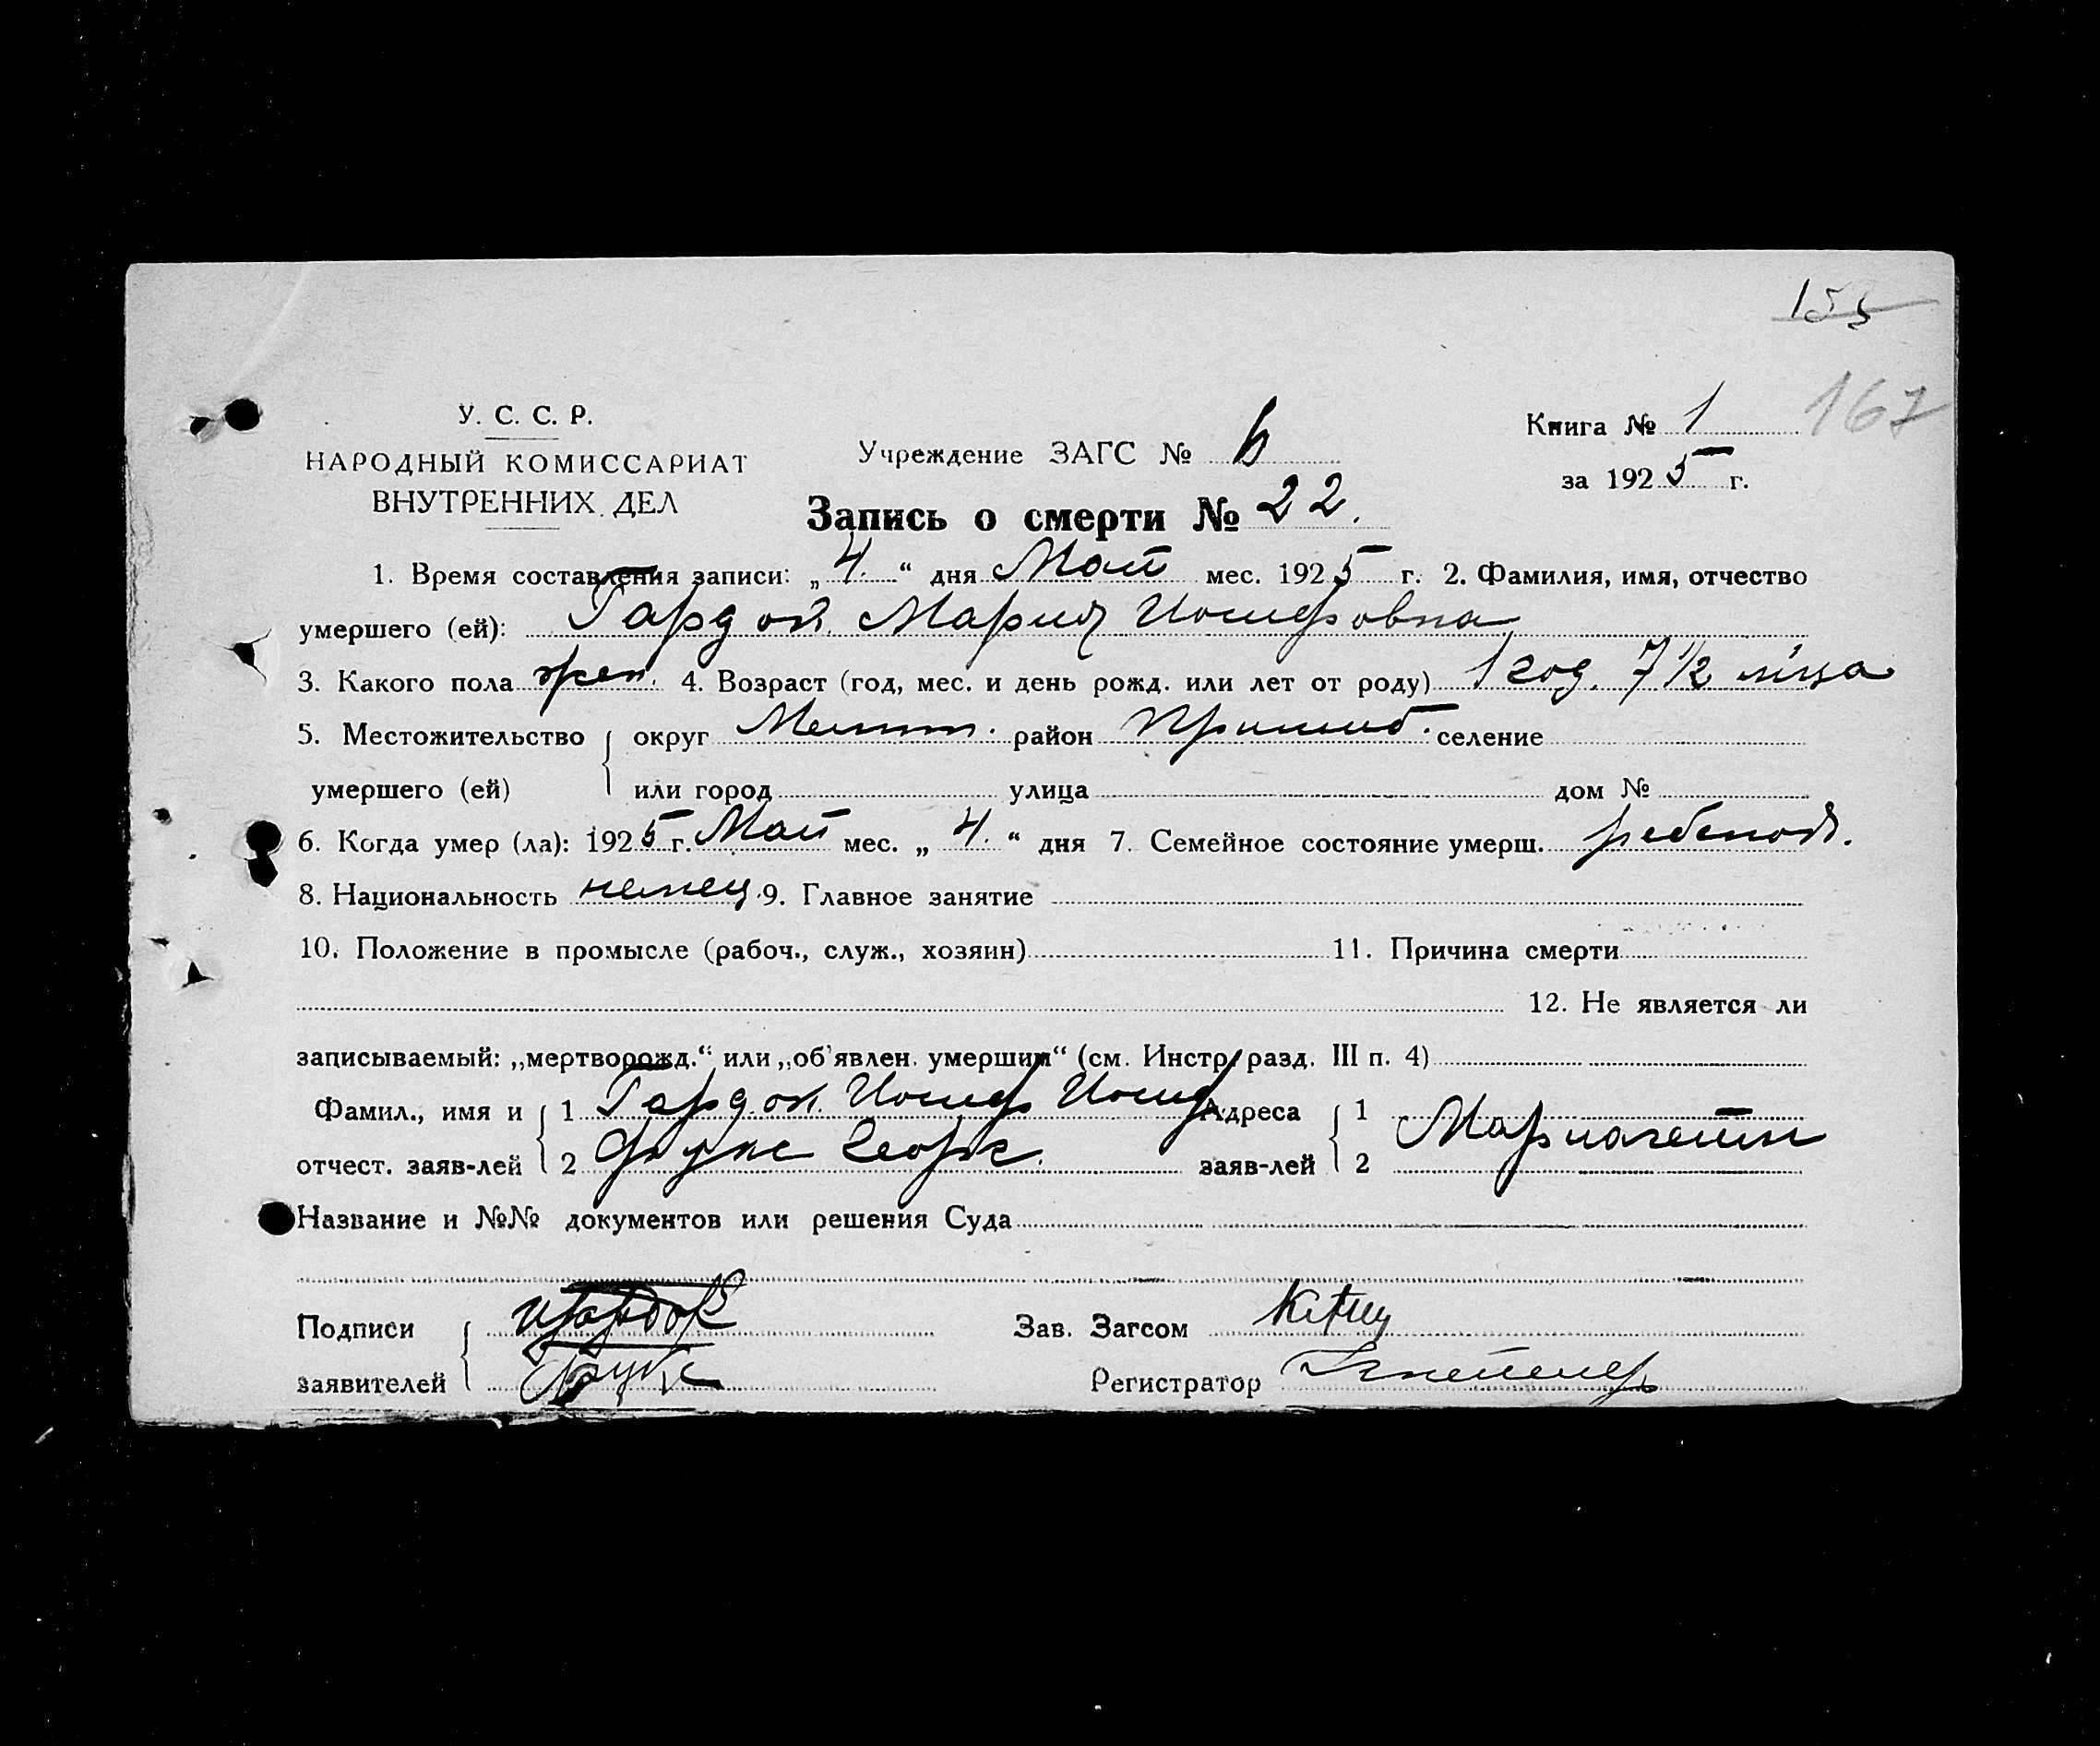 155
167
У. С. С. Р.
НАРОДНЫЙ КОМИССАРИАТ
ВНУТРЕННИХ ДЕЛ
Учреждение ЗАГС № 6
Книга № 1
за 1925 г.
Запись о смерти № 22.
1. Время составления записи: „4.“ дня Май мес. 1925 г. 2. Фамилия, имя, отчество
умершего (ей): Гардок Мария Иосифовна
3. Какого пола жен. 4. Возраст (год, мес. и день рожд. или лет от роду) 1 год. 7 1/2 м-ца
5. Местожительство округ Мелит. район Пришиб. селение
умершего (ей) или город улица дом №
6. Когда умер (ла): 1925 г. Май мес. „4.“ дня 7. Семейное состояние умерш. ребенок.
8. Национальность немец. 9. Главное занятие
10. Положение в промысле (рабоч., служ., хозяин) 11. Причина смерти
12. Не является ли
записываемый: „мертворожд.“ или „об'явлен. умершим“ (см. Инстр. разд. III п. 4)
Фамил., имя и 1 Гардок Иосиф Иосиф Адреса 1 Мариагейм
отчест. заяв-лей 2 Фукс Георг. заяв-лей 2
Название и №№ документов или решения Суда
Подписи И Гардок Зав. Загсом
заявителей Фукс Регистратор